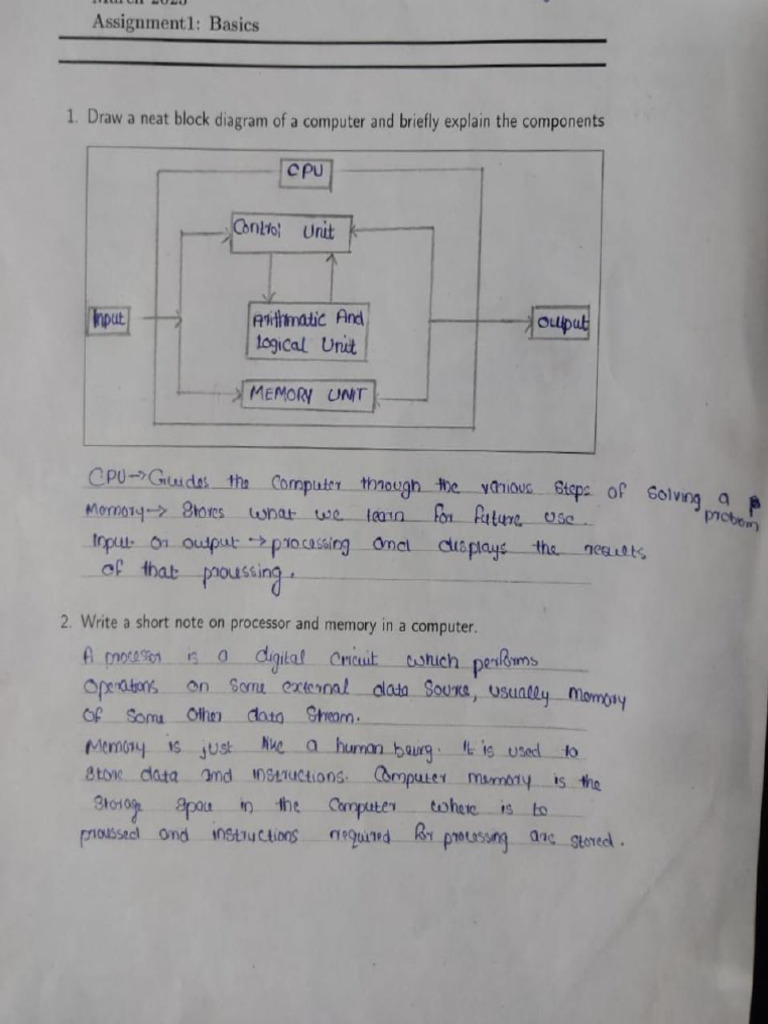 March 2023
Assignment1: Basics
1. Draw a neat block diagram of a computer and briefly explain the components
CPU
Control Unit
Input
Arithmatic And
Logical Unit
Output
MEMORY UNIT
CPU→Guides the computer through the various steps of solving a
problem
Memory→ Stores what we learn for future use.
Input or output → processing and displays the results
of that proussing.
2. Write a short note on processor and memory in a computer.
A processor is a digital circuit which performs
Operations on some external data source, usually memory
Of some other data stream.
Memory is just like a human being. It is used to
Store data and instructions. Computer memory is the
Storage space in the computer where is to
proussed and instructions required for processing are stored.